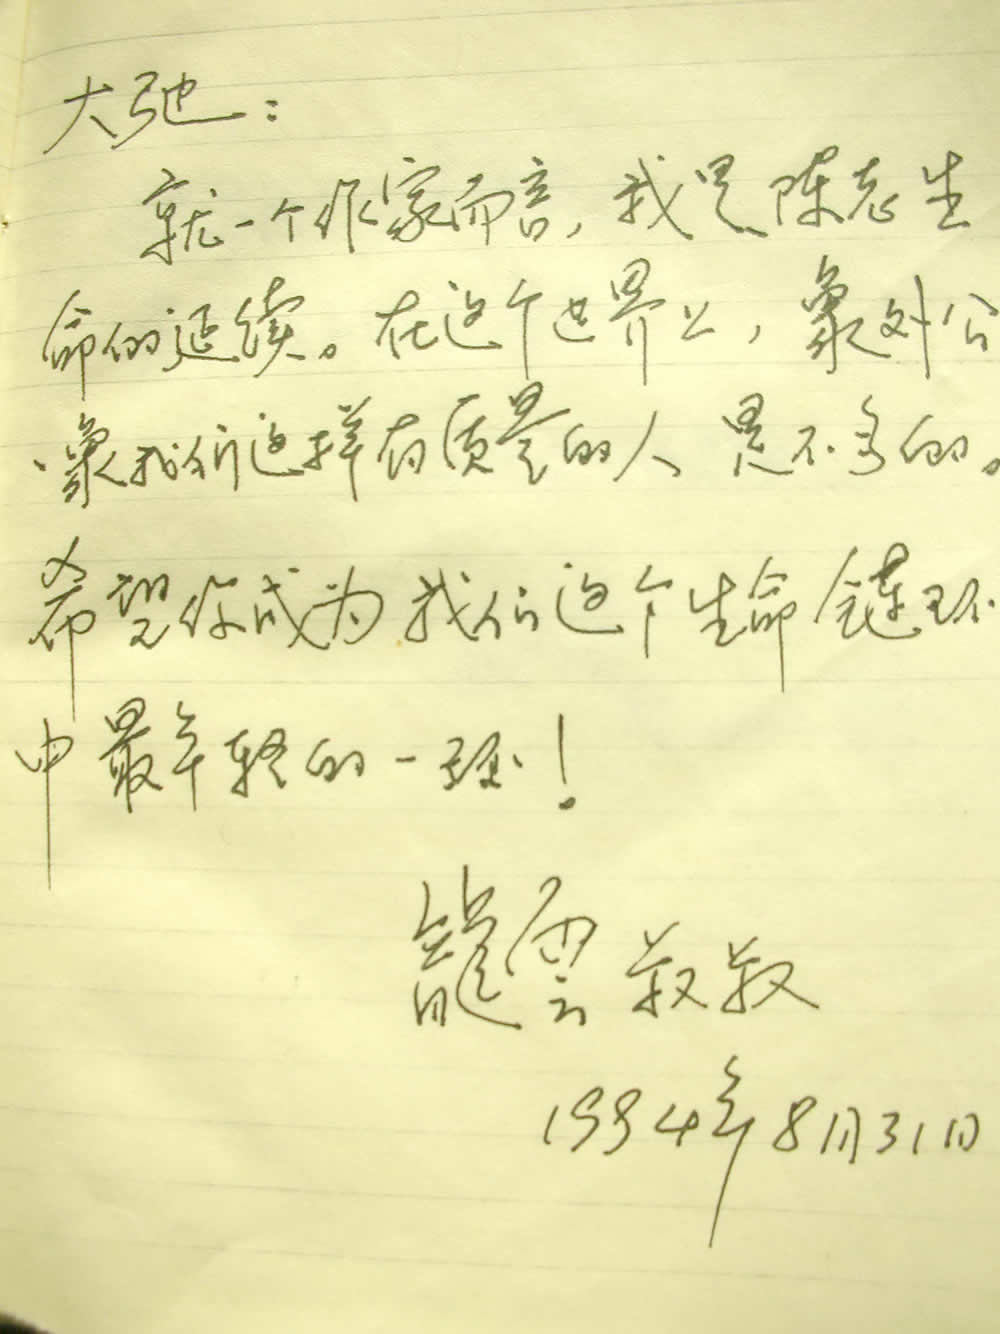 大弛：
就一个作家而言，我是陈老生
命的延续。在这个世界上，象外公
、象我们这样有质量的人是不多的。
希望你成为我们这个生命链环
中最年轻的一环！
龍雲叔叔
1994年8月31日